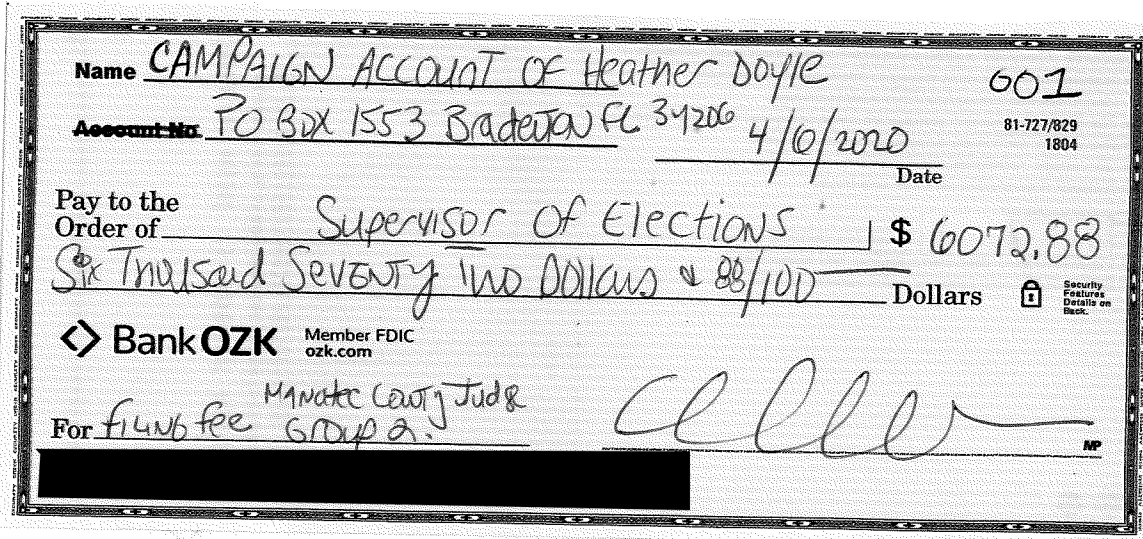 Name CAMPAIGN ACCOUNT OF Heather Doyle
001
Account No. PO BOX 1553 Bradenton FL 34206
4/6/2020
81-727/829
1804
Date
Pay to the
Order of Supervisor Of Elections $ 6072.88
Six Thousand Seventy Two Dollars & 88/100 Dollars
Security
Features
Details on
Back.
BankOZK Member FDIC
ozk.com
Manatee County Judge
For filing fee Group 2.
MP